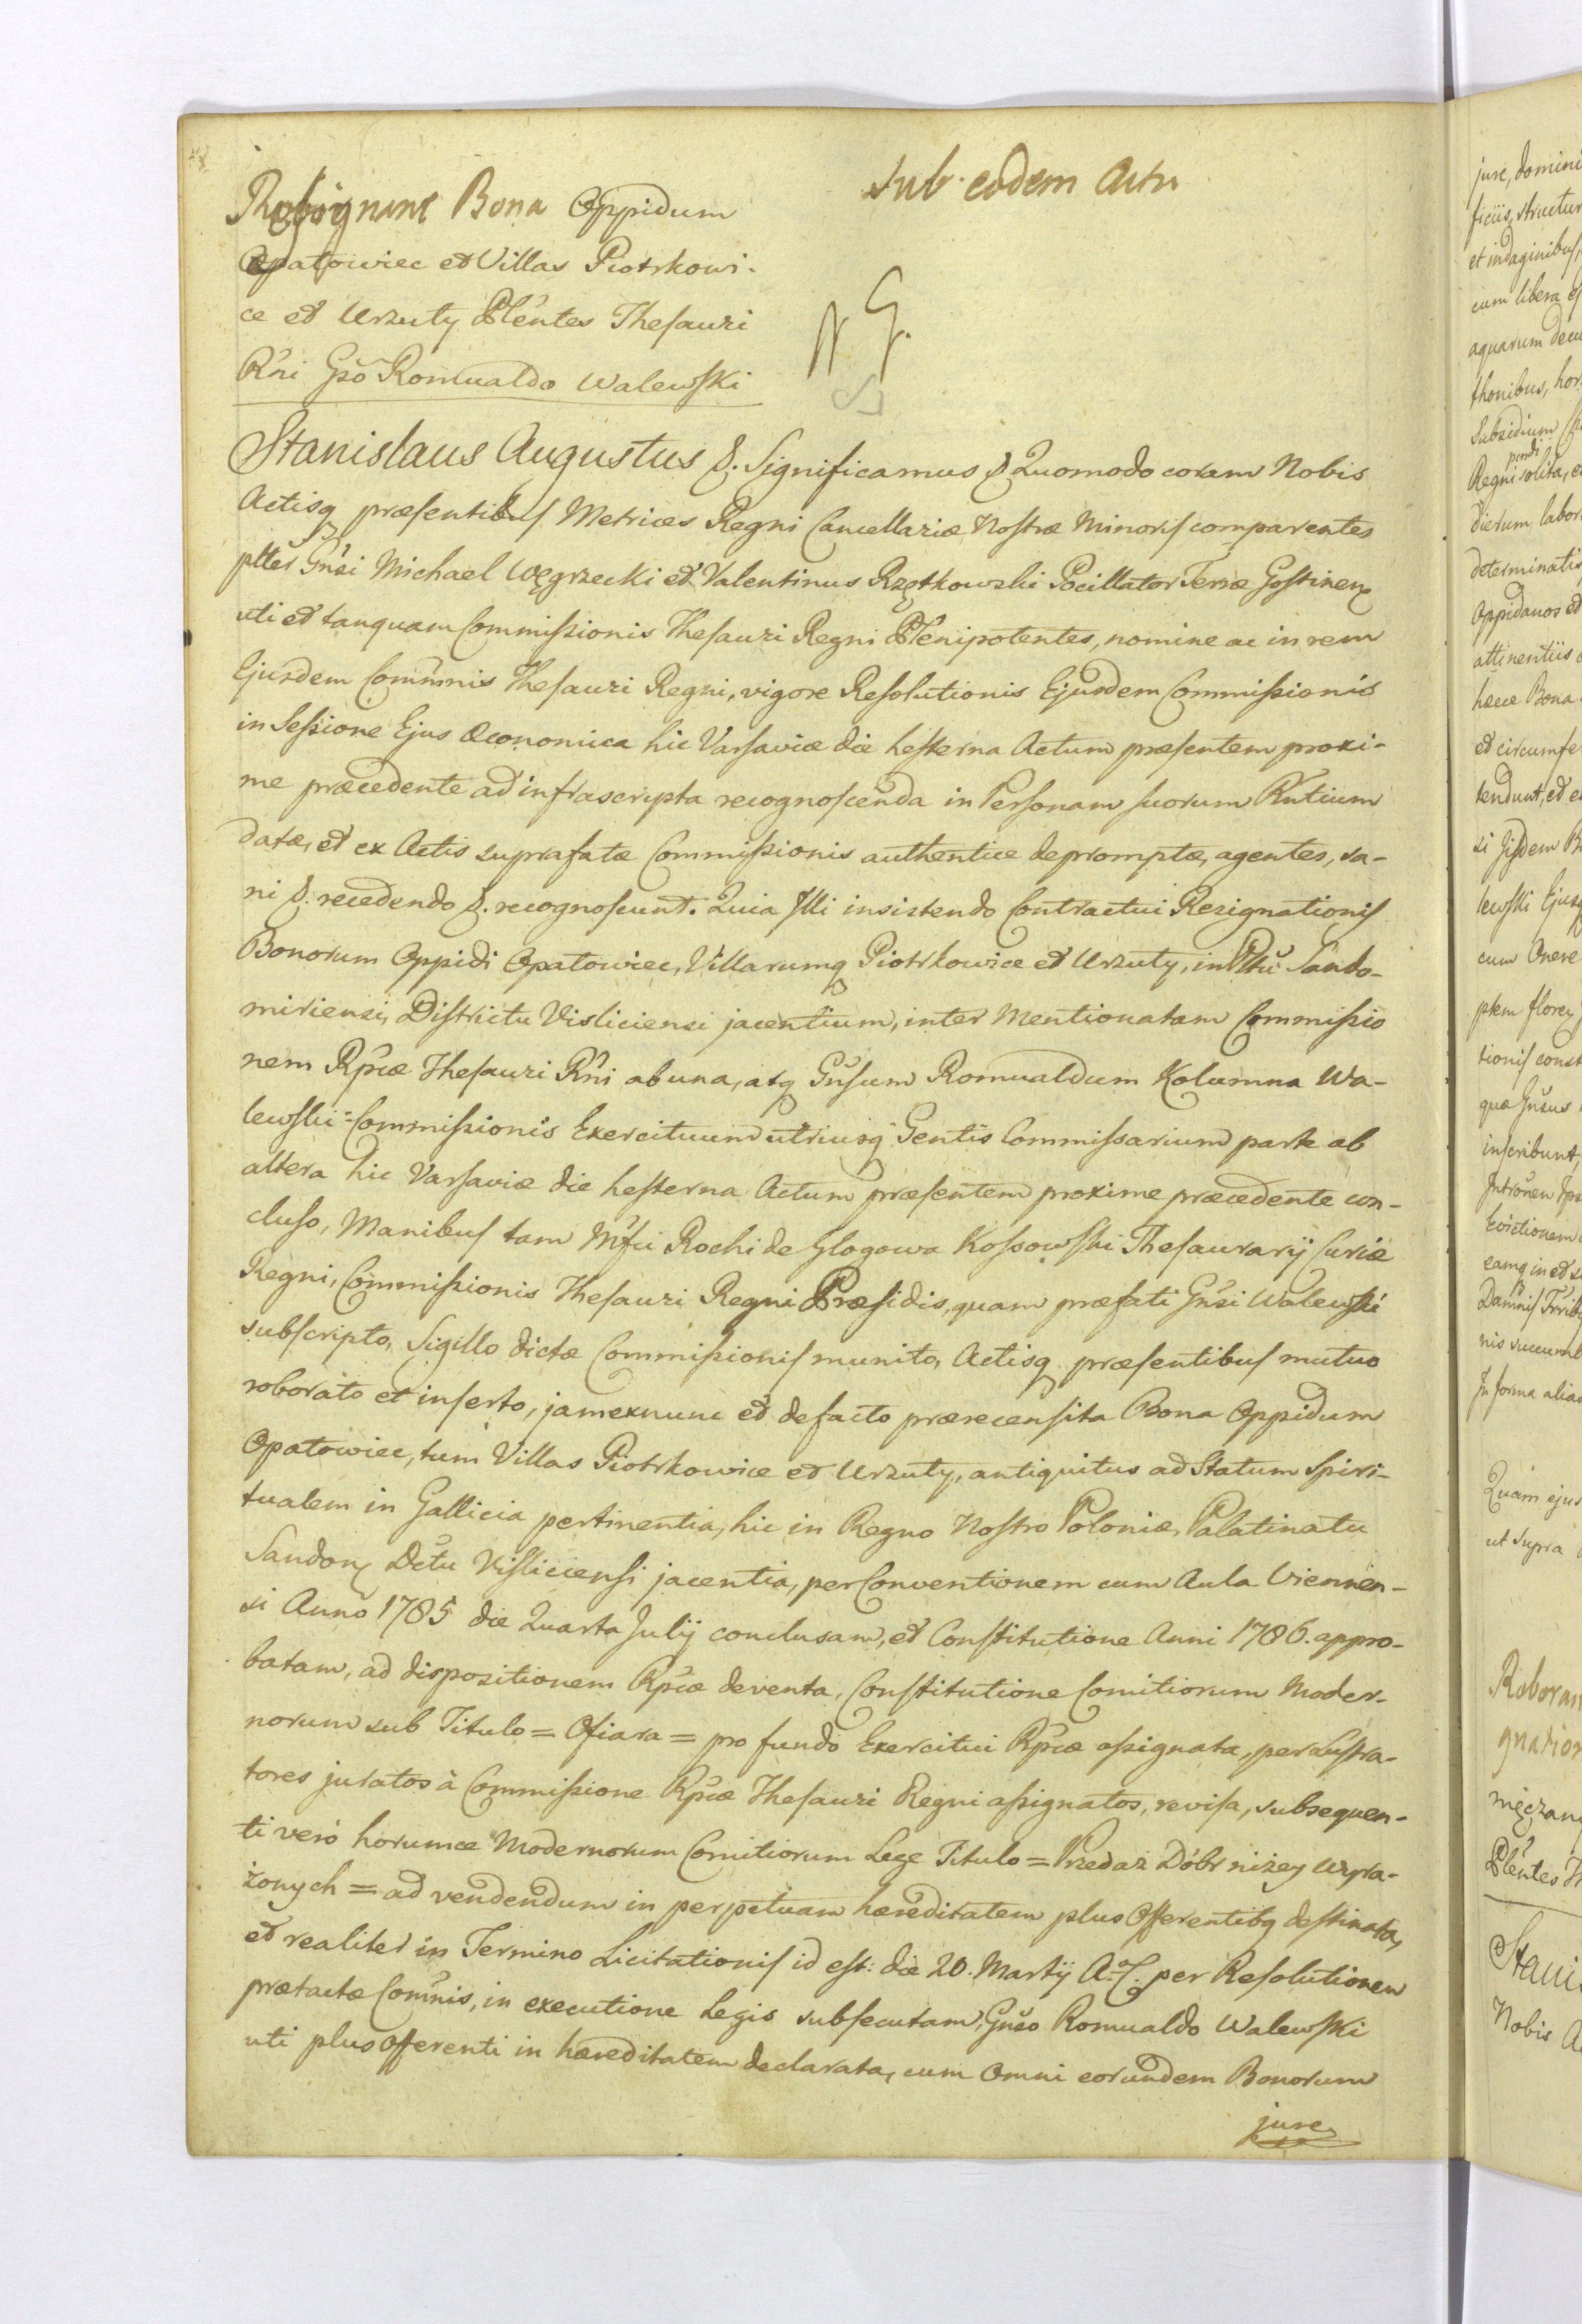 Sub eodem Actu
Resignant Bona Oppidum
Opatowiec et Villas Piotrkowi-
ce et Urzuty Plentes Thesauri
Rni Gso Romualdo Walewski
Stanislaus Augustus &. Significamus & Quomodo coram Nobis
Actisq præsentibus Metrices Regni Cancellariæ Nostræ Minoris comparentes
pltes Gnsi Michael Węgrzecki et Valentinus Rzętkowski Pocillator Terræ Gostinen
uti et tanquam Commissionis Thesauri Regni Plenipotentes, nomine ac in rem
Ejusdem Commnis Thesauri Regni, vigore Resolutionis Ejusdem Commissionis
in Sessione Ejus Œconomica hic Varsaviæ die hesterna Actum præsentem proxi-
me præcedente ad infrascripta recognoscenda in Personam suorum Rntium
datæ, et ex Actis suprafatæ Commissionis authentice depromptæ, agentes, sa-
ni &. recedendo &. recognoscunt. Quia Illi insistendo Contractui Resignationis
Bonorum Oppidi Opatowiec, Villarumq Piotrkowice et Urzuty, in Pltu Sando-
miriensi, Districtu Visliciensi jacentium, inter Mentionatam Commissio
nem Rpcæ Thesauri Rni ab una, atq Gnsum Romualdum Kolumna Wa-
lewski Commissionis Exercituum utriusq Gentis Commissarium parte ab
altera hic Varsaviæ die hesterna Actum præsentem proxime præcedente con-
cluso, Manibus tam Mfci Rochi de Glogowa Kossowski Thesaurarij Curiæ
Regni, Commissionis Thesauri Regni Præsidis, quam præfati Gnsi Walewski
subscripto, Sigillo dictæ Commissionis munito, Actisq præsentibus mutuo
roborato et inserto, jam exnunc et defacto prærecensita Bona Oppidum
Opatowiec, tum Villas Piotrkowice et Urzuty, antiquitus ad Statum Spiri-
tualem in Gallicia pertinentia, hic in Regno Nostro Poloniæ, Palatinatu
Sandom Dctu Visliciensi jacentia, per Conventionem cum Aula Viennen-
si Anno 1785 die Quarta Julij conclusam, et Constitutione Anni 1786. appro-
batam, ad dispositionem Rpcæ deventa, Constitutione Comitiorum Moder-
norum sub Titulo = Ofiara = pro fundo Exercitui Rpcæ assignata, per Lustra-
tores juratos à Commissione Rpcæ Thesauri Regni assignatos, revisa, subsequen-
ti verò horumce Modernorum Comitiorum Lege Titulo = Przedaż Dóbr niżey wyra-
żonych = ad vendendum in perpetuam hæreditatem plus Offerentibq destinata,
et realiter in Termino Licitationis id est: die 20. Martij A. C. per Resolutionem
prætactæ Comnis, in executione Legis subsecutam, Gnso Romualdo Walewski
uti plus Offerenti in hæreditatem declarata, cum Omni eorundem Bonorum
jure
jure, domini
ficiis, structur
et indaginibus,
cum libera
aquarum decu
thonibus, hor
Subsidium
pendi
Regni solita,
dierum labor
determinatis
Oppidanos et
attinentiis
hæce Bona
et circumfe
tendunt, et
si Jisdem B
lewski Ejusq
cum Onere
tionis const
quæ Gnsus
inscribunt,
Evictionem
eamq in et
nis succumb
In forma alias
Quam ejus
ut supra
Roboran
gnation
Plentes
Stani
Nobis A